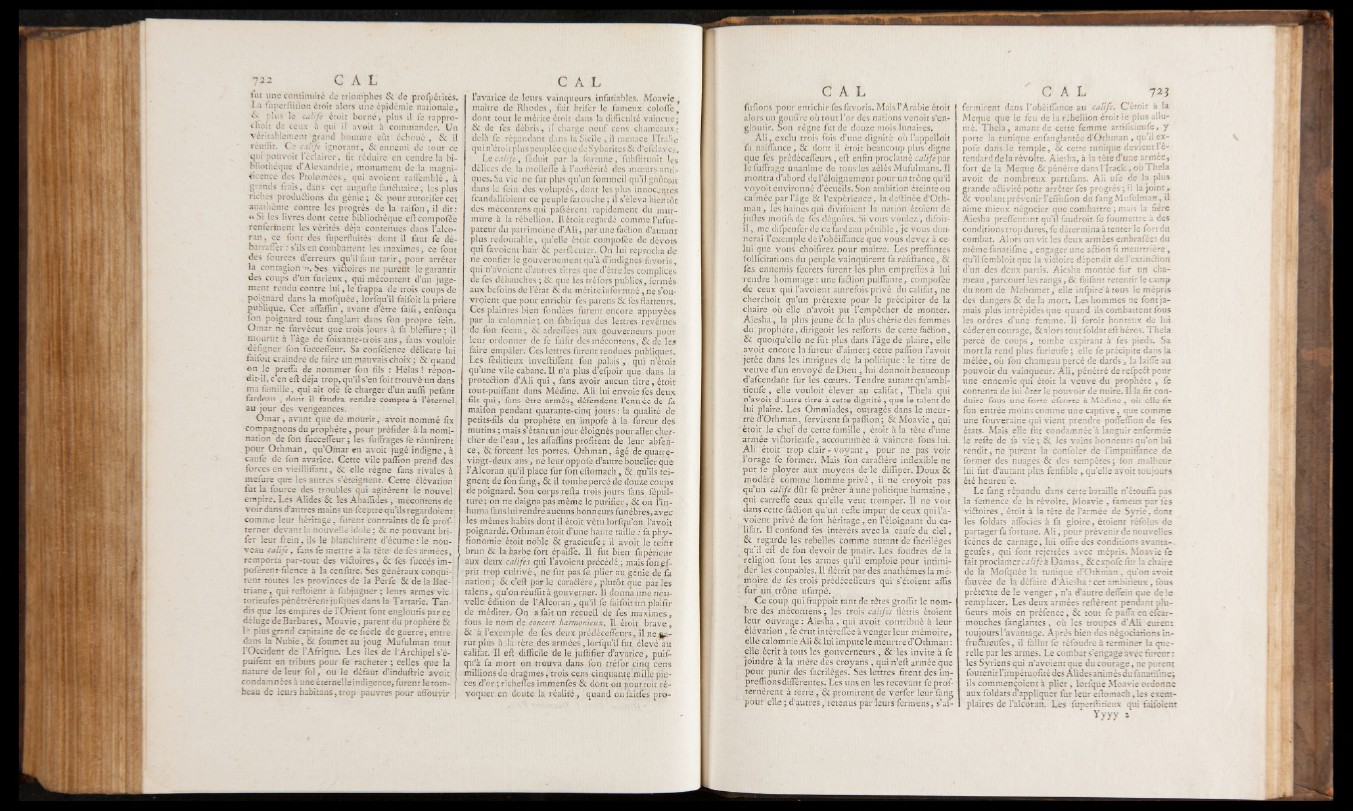 722 C A L
C A L
fut une continuité de triomphes & de prospérités.
La superstition étoit alors une épidémie nationale,
& plus le calife étoit borné, plus il se rappro-
choit de ceux à qui il avoit à commander. Un
véritablement grand homme eût échoué, & il
réussit. Ce calife ignorant, & ennemi de tout ce
qui pouvoit l'éclairer, fit réduire en cendre la bi-
bliothèque d'Alexandrie, monument de la magni-
ficence des Ptolomées, qui avoient rassemblé, à
grands frais, dans cet auguste sanctuaire, les plus
riches productions du génie; & pour autoriser cet
anathême contre les progrès de la raison, il dit:
« Si les livres dont cette bibliothèque est composée
renferment les vérités déja contenues dans l'alco-
ran, ce sont des superfluités dont il faut se dé-
barrasser: s'ils en combattent les maximes, ce sont
des sources d'erreurs qu'il faut tarir, pour arrêter
la contagion ». Ses victoires ne purent le garantir
des coups d'un furieux, qui mécontent d'un juge-
ment rendu contre lui, le frappa de trois coups de
poignard dans la mosquée, lorsqu'il faisoit la priere
publique. Cet assassin, avant d'être saisi, enfonça
son poignard tout sanglant dans son propre sein.
Omar ne survécut que trois jours à sa blessure; il
mourut à l'âge de soixante-trois ans, sans vouloir
désigner son successeur. Sa conscience délicate lui
faisoit craindre de faire un mauvais choix; & quand
on le pressa de nommer son fils: Hélas! répon-
dit-il, c'en est déja trop, qu'il s'en soit trouvé un dans
ma famille, qui ait osé se charger d'un aussi pesant
fardeau, dont il faudra rendre compte à l'éternel
au jour des vengeances.
Omar, avant que de mourir, avoit nommé six
compagnons du prophète, pour présider à la nomi-
nation de son successeur; les suffrages se réunirent
pour Othman, qu'Omar en avoit jugé indigne, à
cause de son avarice. Cette vile passion prend des
forces en vieillissant, & elle règne sans rivales à
mesure que les autres s'éteignent. Cette élévation
fut la source des troubles qui agitèrent le nouvel
empire. Les Alides & les Abassides, mécontens de
voir dans d'autres mains un sceptre qu'ils regardoient
comme leur héritage, furent contraints de se pros-
terner devant la nouvelle idole; & ne pouvant bri-
ser leur frein, ils le blanchirent d'écume: le nou-
veau calife, sans se mettre à la tête de ses armées,
remporta par-tout des victoires, & ses succès im-
posèrent silence à la censure. Ses généraux conqui-
rent toutes les provinces de la Perse & de la Bac-
triane, qui restoient à subjuguer; leurs armes vic-
torieuses pénétrèrent jusques dans la Tartarie. Tan-
dis que les empires de l'Orient sont engloutis par ce
déluge de Barbares, Moavie, parent du prophète &
le plus grand capitaine de ce siecle de guerre, entre
dans la Nubie, & soumet au joug Musulman tout
l'Occident de l'Afrique. Les îles de l'Archipel s'é-
puisent en tributs pour se racheter; celles que la
nature de leur sol, ou le défaut d'industrie avoit
condamnées à une éternelle indigence, furent le tom-
beau de leurs habitans, trop pauvres pour assouvir
l'avarice de leurs vainqueurs insatiables. Moavie,
maître de Rhodes, fait briser le fameux colosse,
dont tout le mérite étoit dans la difficulté vaincue;
& de ses débris, il charge neuf cens chameaux;
delà se répandant dans la Sicile, il menace l'Italie
qui n'étoit plus peuplée que de Sybarites & d'esclaves.
Le calife, séduit par la fortune, substituoit les
délices de la mollesse à l'austérité des mœurs anti-
ques. Sa vie ne fut plus qu'un sommeil qu'il goûtoit
dans le sein des voluptés, dont les plus innocentes
scandalisoient ce peuple farouche; il s'éleva bientôt
des mécontens qui passèrent rapidement du mur-
mure à la rébellion. Il étoit regardé comme l'usur-
pateur du patrimoine d'Ali, par une faction d'autant
plus redoutable, qu'elle étoit composée de dévots
qui savoient haïr & persécuter. On lui reprocha de
ne confier le gouvernement qu'à d'indignes favoris,
qui n'avoient d'autres titres que d'être les complices
de ses débauches; & que les trésors publics, fermés
aux besoins de l'état & du mérite infortuné, ne s'ou-
vroient que pour enrichir ses parens & ses flatteurs.
Ces plaintes bien fondées furent encore appuyées
par la calomnie; on fabriqua des lettres revêtues
de son sceau, & adressées aux gouverneurs pour
leur ordonner de se saisir des mécontens, & de les
faire empâler. Ces lettres furent rendues publiques.
Les séditieux investissent son palais, qui n'étoit
qu'une vile cabane. Il n'a plus d'espoir que dans la
protection d'Ali qui, sans avoir aucun titre, étoit
tout-puissant dans Médine. Ali lui envoie ses deux
fils qui, sans être armés, défendent l'entrée de sa
maison pendant quarante-cinq jours: la qualité de
petits-fils du prophète en impose à la fureur des
mutins; mais s'étant un jour éloignés pour aller cher-
cher de l'eau, les assassins profitent de leur absen-
ce, & forcent les portes. Othman, âgé de quatre-
vingt-deux ans, ne leur opposé d'autre bouclier que
l'Alcoran qu'il place sur son estomach, & qu'ils tei-
gnent de son sang, & il tombe percé de douze coups
de poignard. Son corps resta trois jours sans sépul-
ture; on ne daigna pas même le purifier, & on l'in-
huma sans lui rendre aucuns honneurs funèbres, avec
les mêmes habits dont il étoit vêtu lorsqu'on l'avoit
poignardé. Othman étoit d'une haute taille: sa phy-
sionomie étoit noble & gracieuse; il avoit le teint
brun & la barbe fort épaisse. Il fut bien supérieur
aux deux califes qui l'avoient précédé; mais son es-
prit trop cultivé, ne sut pas se plier au génie de sa
nation; & c'est par le caractère, plutôt que par les
talens, qu'on réussit à gouverner. Il donna une nou-
velle édition de l'Alcoran, qu'il se faisoit un plaisir
de méditer. On a fait un recueil de ses maximes,
sous le nom de concert harmonieux. Il étoit brave,
& à l'exemple de ses deux prédécesseurs, il ne pa-
rut plus à la tête des armées, lorsqu'il fut élevé au
califat. Il est difficile de le justifier d'avarice, puis-
qu'à sa mort on trouva dans son trésor cinq cens
millions de dragmes, trois cens cinquante mille pie-
ces d'or; richesses immenses & dont on pourroit ré-
voquer en doute la réalité, quand on saitses pro-
C A L
C A L 723
fusions pour enrichir ses favoris. Mais l'Arabie étoit
alors un gouffre où tout l'or des nations venoit s'en-
gloutir. Son règne fut de douze mois lunaires.
Ali, exclu trois fois d'une dignité où l'appelloit
sa naissance, & dont il étoit beaucoup plus digne
que ses prédécesseurs, est enfin proclamé calife par
le suffrage unanime de tous les zélés Musulmans. Il
montra d'abord de l'éloignement pour un trône qu'il
voyoit environné d'écueils. Son ambition éteinte ou
calmée par l'âge & l'expérience, la destinée d'Oth-
man, les haines qui divisoient la nation étoient de
justes motifs de ses dégoûts. Si vous voulez, disoit-
il, me dispenser de ce fardeau pénible, je vous don-
nerai l'exemple de l'obéissance que vous devez à ce-
lui que vous choisirez pour maître. Les pressantes
sollicitations du peuple vainquirent sa résistance, &
ses ennemis secrets furent les plus empressés à lui
rendre hommage: une faction puissante, composée
de ceux qui l'avoient autrefois privé du califat, ne
cherchoit qu'un prétexte pour le précipiter de la
chaire où elle n'avoit pu l'empêcher de monter.
Aiesha, la plus jeune & la plus chérie des femmes
du prophète, dirigeoit les ressorts de cette faction,
& quoiqu'elle ne fût plus dans l'âge de plaire, elle
avoit encore la fureur d'aimer; cette passion l'avoit
jetée dans les intrigues de la politique: le titre de
veuve d'un envoyé de Dieu, lui donnoit beaucoup
d'ascendant sur les cœurs. Tendre autant qu'ambi-
tieuse, elle vouloit élever au califat, Thela qui
n'avoit d'autre titre à cette dignité, que le talent de
lui plaire. Les Ommiades, outragés dans le meur-
tre d'Othman, servirent sa passion; & Moavie, qui
étoit le chef de cette famille, étoit à la tête d'une
armée victorieuse, accoutumée à vaincre sous lui.
Ali étoit trop clair-voyant, pour ne pas voir
l'orage se former. Mais son caractère inflexible ne
put se ployer aux moyens de le dissiper. Doux &
modéré comme homme privé, il ne croyoit pas
qu'un calife dût se prêter à une politique humaine,
qui caresse ceux qu'elle veut tromper. Il ne voit
dans cette faction qu'un reste impur de ceux qui l'a-
voient privé de son héritage, en l'éloignant du ca-
lifat. Il confond ses intérêts avec la cause du ciel,
& regarde les rebelles comme autant de sacrilèges
qu'il est de son devoir de punir. Les foudres de la
religion sont les armes qu'il emploie pour intimi-
der les coupables. Il flétrit par des anathêmes la mé-
moire de ses trois prédécesseurs qui s'étoient assis
sur un trône usurpé.
Ce coup qui frappoit tant de têtes grossit le nom-
bre des mécontens; les trois califes flétris étoient
leur ouvrage: Aiesha, qui avoit contribué à leur
élévation, se crut intéressée à venger leur mémoire,
elle calomnie Ali & lui impute le meurtre d'Othman:
elle écrit à tous les gouverneurs, & les invite à se
joindre à la mère des croyans, qui n'est armée que
pour punir des sacrilèges. Ses lettres firent des im-
pressions différentes. Les uns en les recevant se pros-
ternèrent à terre, & promirent de verser leur sang
pour elle; d'autres, retenus par leurs sermens, s'af-
fermirent dans l'obéissance au calife. C'étoit à la
Mecque que le feu de la rébellion étoit le plus allu-
mé. Thela, amant de cette femme artificieuse, y
porte la tunique ensanglantée d'Othman, qu'il ex-
pose dans le temple, & cette tunique devient l'é-
tendard de la révolte. Aiesha, à la tête d'une armée,
sort de la Meque & pénètre dans l'Irack, où Thela
avoit de nombreux partisans. Ali use de la plus
grande activité pour arrêter ses progrès; il la joint,
& voulant prévenir l'effusion du sang Musulman, il
aime mieux négocier que combattre; mais la fière
Aiesha pressentant qu'il faudroit se soumettre à des
conditions trop dures, se détermina à tenter le sort du
combat. Alors on vit les deux armées embrasées du
même fanatisme, engager une action si meurtrière,
qu'il sembloit que la victoire dépendît de l'extinction
d'un des deux partis. Aiesha montée sur un cha-
meau, parcourt les rangs, & faisant retentir le camp
du nom de Mahomet, elle inspire à tous le mépris
des dangers & de la mort. Les hommes ne sont ja-
mais plus intrépides que quand ils combattent sous
les ordres d'une femme. Il seroit honteux de lui
céder en courage, & alors tout soldat est héros. Thela
percé de coups, tombe expirant à ses pieds. Sa
mort la rend plus furieuse; elle se précipite dans la
mêlée, où son chameau percé de dards, la laisse au
pouvoir du vainqueur. Ali, pénétré de respect pour
une ennemie qui étoit la veuve du prophète, se
contenta de lui ôter le pouvoir de nuire. Il la fit con-
duire sous une forte escorte à Médine, où elle fit
son entrée moins comme une captive, que comme
une souveraine qui vient prendre possession de ses
états. Mais elle fut condamnée à languir enfermée
le reste de sa vie; & les vains honneurs qu'on lui
rendit, ne purent la consoler de l'impuissance de
former des nuages & des tempêtes; son malheur
lui fut d'autant plus sensible, qu'elle avoit toujours
été heureuse.
Le sang répandu dans cette bataille n'étouffa pas
la semence de la révolte. Moavie, fameux par les
victoires, étoit à la tête de l'armée de Syrie, dont
les soldats associés à sa gloire, étoient résolus de
partager sa fortune. Ali, pour prévenir de nouvelles
scènes de carnage, lui offre des conditions avanta-
geuses, qui sont rejettées avec mépris. Moavie se
fait proclamer calife à Damas, & expose sur la chaire
de la Mosquée la tunique d'Othman, qu'on avoit
sauvée de la défaite d'Aiesha: cet ambitieux, sous
prétexte de le venger, n'a d'autre dessein que de le
remplacer. Les deux armées restèrent pendant plu-
sieurs mois en présence, & tout se passa en escar-
mouches sanglantes, où les troupes d'Ali eurent
toujours l'avantage. Après bien des négociations in-
fructueuses, il fallut se résoudre à terminer la que-
relle par les armes. Le combat s'engage avec fureur:
les Syriens qui n'avoient que du courage, ne purent
soutenir l'impétuosité des Alides animés du fanatisme;
ils commençoient à plier, lorsque Moavie ordonne
aux soldats d'appliquer sur leur estomach, les exem-
plaires de l'alcoran. Les superstitieux qui faisoient
Yyyy 2